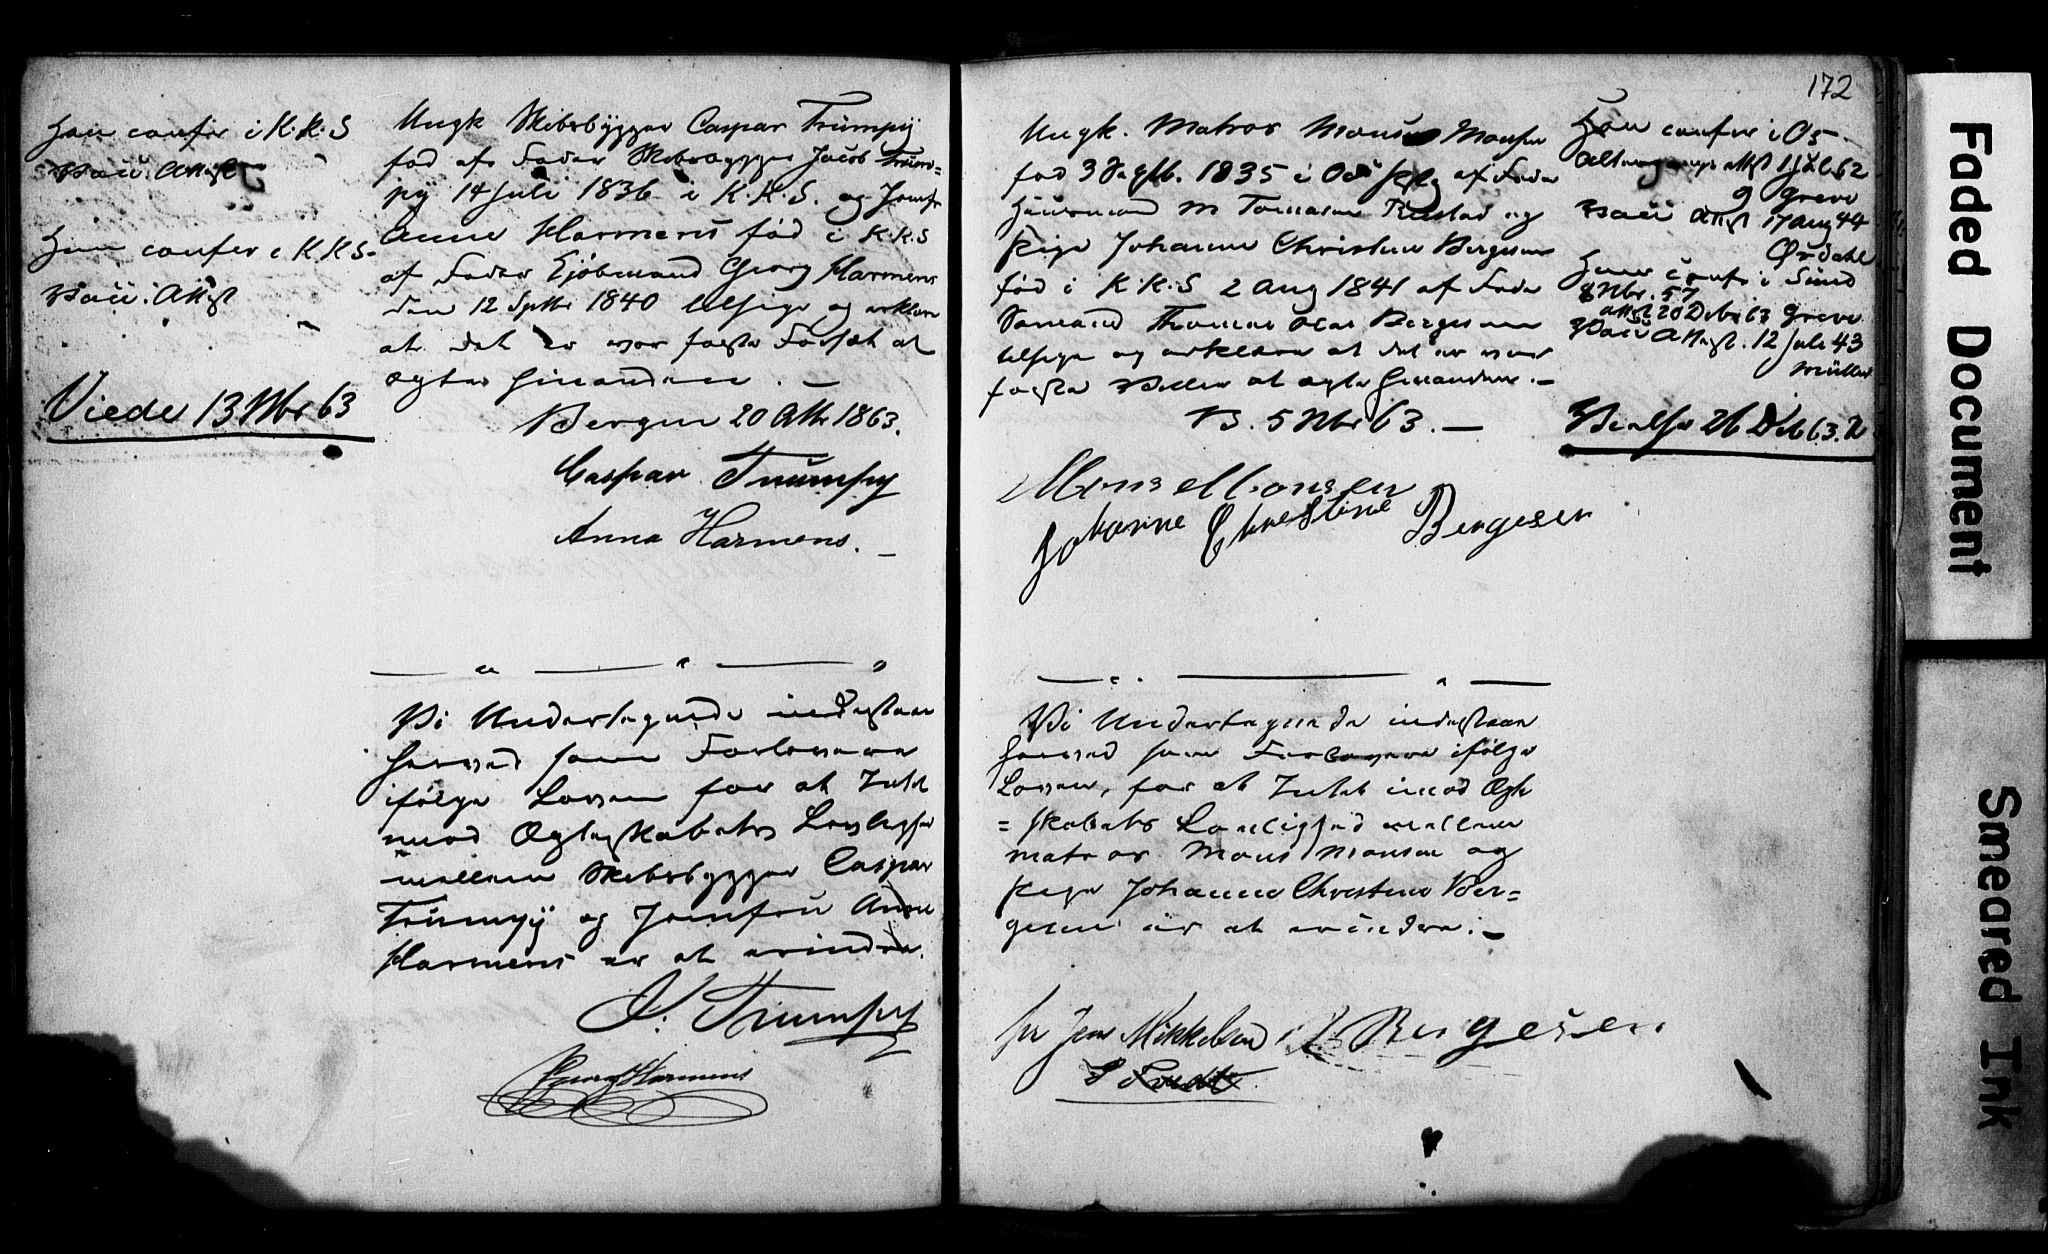 Han confir i K.K.S
Vacc. Attest
Hun confir i K.K.S.
Vacc. Attest
Viede 13 Nbr 63
Ungk Skibsbygger Caspar Trümpÿ
fød af Fader Skibsbygger Jacob Trüm=
pÿ 14 Juli 1836 i K.K.S. og Jomfr
Anne Harmens fød i K.K.S
af Fader Kjøbmand Georg Harmens
den 12 Septbr 1840 tilsige og erklære
at det er vor faste Forsæt at
ægte hinanden. —
Bergen 20 Octbr 1863.
Caspar Trümpy
Anna Harmens. —
Vi Undertegnede indestaae
herved som Forlovere
ifølge Loven for at Intet
mod Ægteskabets Lovlighed
mellem Skibsbygger Caspar
Trümpÿ og Jomfru Anne
Harmens er at erindre.
J. Trümpy
Georg Harmens
172
Ungk. Matros Mons Monsen
fød 3 Septb. 1835 i Os af Fader
Huusmand M Tomasen og
Pige Johanne Christine Bergesen
fød i K.K.S 2 Aug 1841 af Fader
Sømand Thomas Olai Bergesen
tilsige og erklære at det er vor
faste Villie at ægte hinanden. —
B. 5 Nbr 63. —
Mons Monsen
Johanne Christine Bergesen
Han confir i Os
Altergangs attst 62
Greve
Vacc Attst 17 Aug 44
Hun confir i Sund
8 Nbr. 57
attst 20 Debr 63 Greve
Vacc Attest. 12 Juli 43
Müller
26 Deb 63.
Vi Undertegnede indestaae
herved som Forlovere ifølge
Loven, for at Intet imod Ægte
= skabets Lovlighed mellem
matros Mons Monsen og
Pige Johanne Christine Ber=
gesen er at erindre. —
for Jens Mikkelsen Bergesen
Faded Document
Smeared Ink